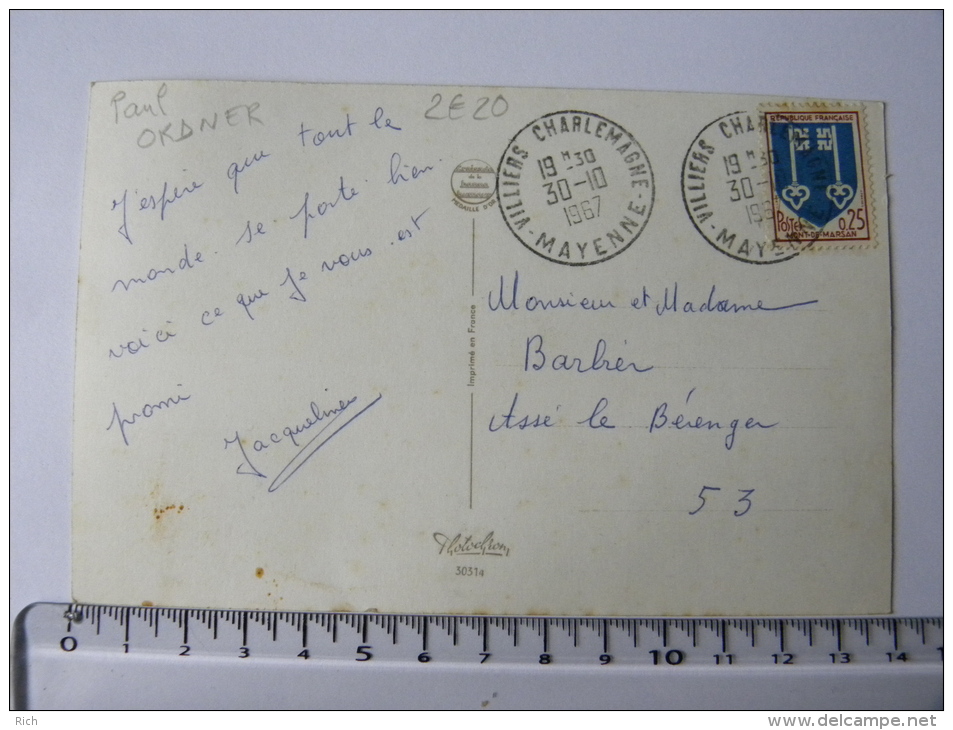 Paul
ORDNER
2E20
J'espère que tout le
monde se porte bien.
voici ce que je vous est
promi
Jacqueline
MEDAILLE D'OR
Imprimé en France
Photochrom
30314
VILLIERS CHARLEMAGNE
19 H 30
30-10
1967
-MAYENNE-
VILLIERS CHARLEMAGNE
19 H 30
30-
196
-MAYENNE
REPUBLIQUE FRANÇAISE
Postes 0,25
MONT-DE-MARSAN
Monsieur et Madame
Barbier
Assé le Bérenger
53
0 1 2 3 4 5 6 7 8 9 10 11 12 13 14 1
Rich
www.delcampe.net